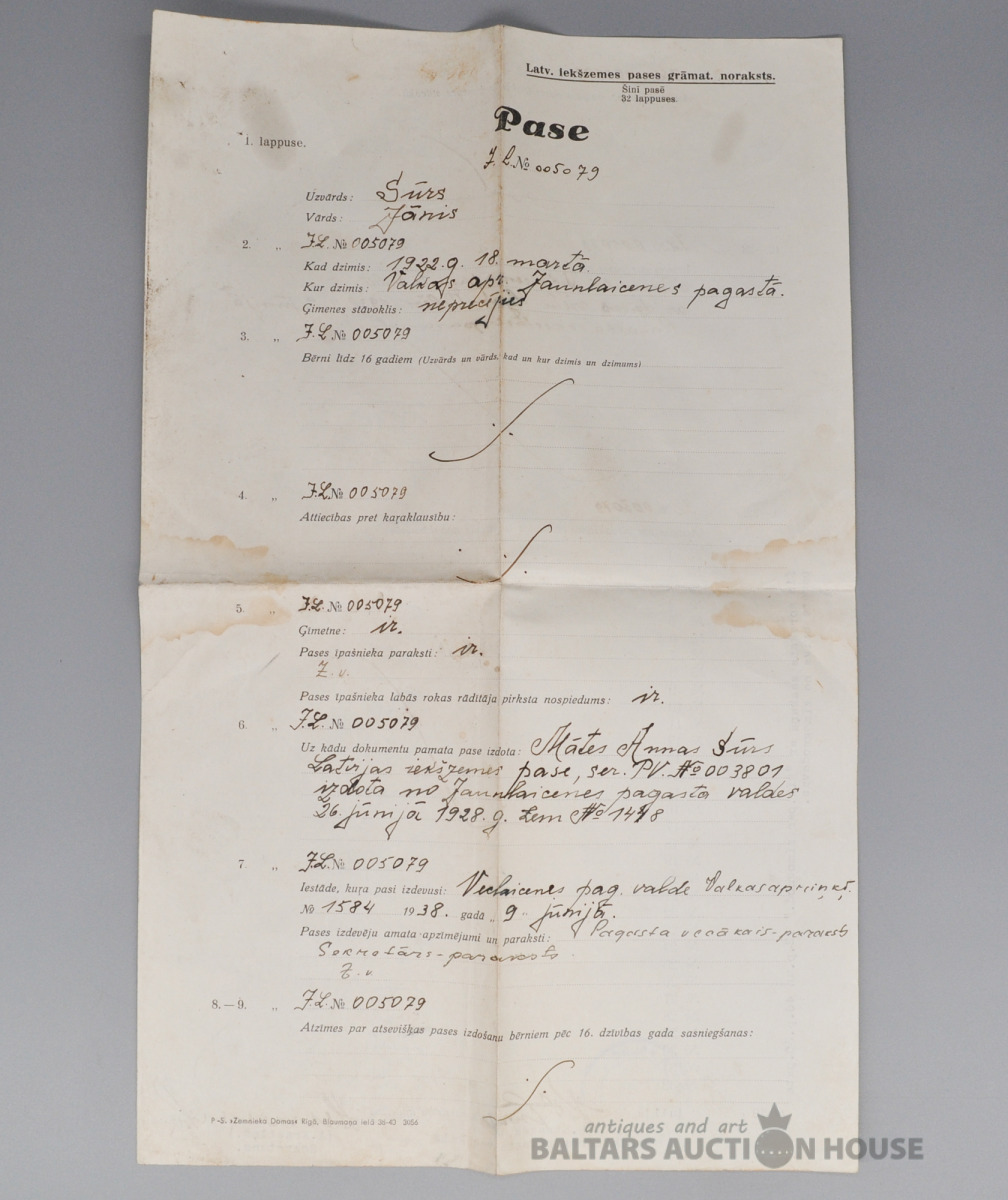 Latv. iekšzemes pases grāmat. noraksts.
Šini pasē
32 lappuses.
Pase
J. L. № 005079
1. lappuse.
Uzvārds: Sūrs
Vārds: Jānis
2. „ J.L. № 005079
Kad dzimis: 1922.g. 18. martā
Kur dzimis: Valkas apr. Jaunlaicenes pagastā.
Ģimenes stāvoklis: neprecējies
3. „ J.L. № 005079
Bērni līdz 16 gadiem (Uzvārds un vārds, kad un kur dzimis un dzimums)
4. „ J.L. № 005079
Attiecības pret kaŗaklausību:
5. „ J.L. № 005079
Ģimetne: ir.
Pases īpašnieka paraksti: ir.
Z. v.
Pases īpašnieka labās rokas rādītāja pirksta nospiedums: ir.
6. „ J.L. № 005079
Uz kādu dokumentu pamata pase izdota: Mātes Annas Sūrs
Latvijas iekšzemes pase, ser. PV. № 003801
izdota no Jaunlaicenes pagasta valdes
26. jūnijā 1928. g. zem № 1448
7. „ J.L. № 005079
Iestāde, kuŗa pasi izdevusi: Veclaicenes pag. valde Valkas apriņķī,
№ 1584 1938. gadā „ 9 " jūnijā.
Pases izdevēju amata apzīmējumi un paraksti: Pagasta vecākais-paraksts
Sekretārs-paraksts
Z. v.
8.—9. „ J.L. № 005079
Atzīmes par atsevišķas pases izdošanu bērniem pēc 16. dzīvības gada sasniegšanas:
P.-S. »Zemnieka Domas« Rīgā, Blaumaņa ielā 38-40 3056
antiques and art
BALTARS AUCTION HOUSE